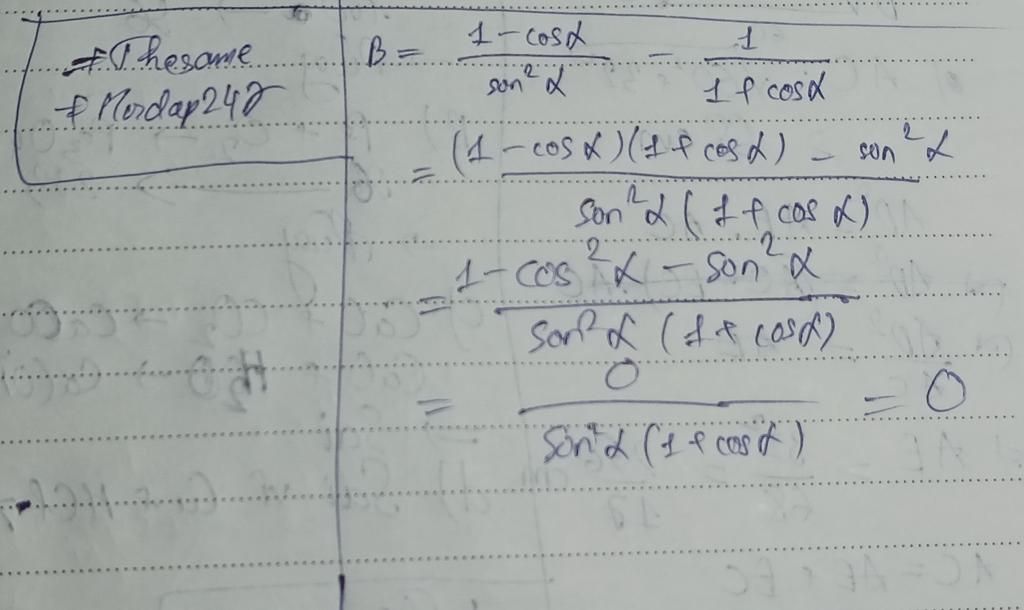 #Thesame
#Hoidap247
B = \frac{1 - cosα}{sin²α} - \frac{1}{1 + cosα}
= \frac{(1 - cosα)(1 + cosα) - sin²α}{sin²α(1 + cosα)}
= \frac{1 - cos²α - sin²α}{sin²α(1 + cosα)}
= \frac{0}{sin²α(1 + cosα)} = 0